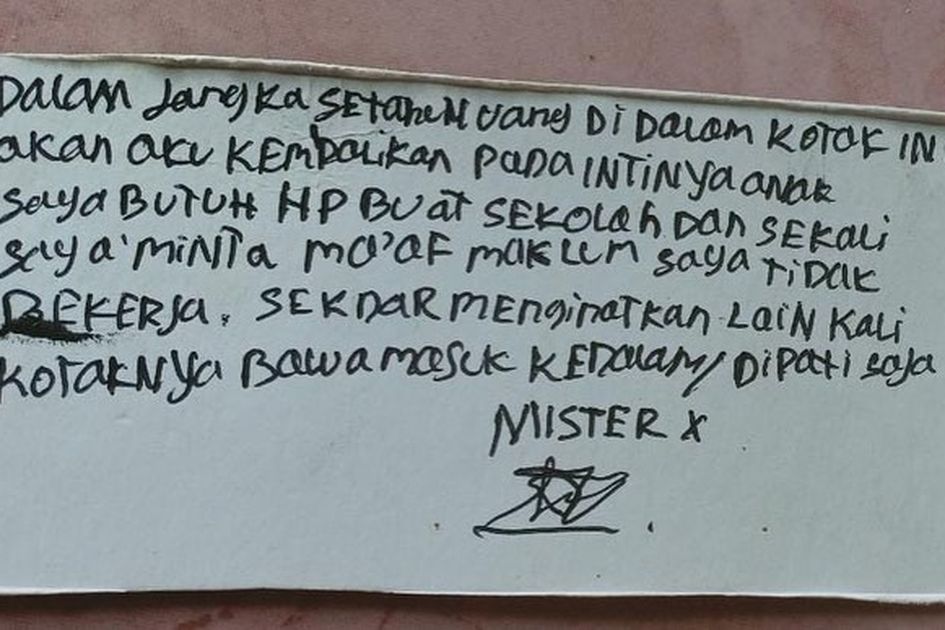 Dalam Jangka SETAHUN uang Di Dalam KOTAK IN
akan aku KEMBALIKAN PADA INTINYA anak
saya BUTUH HP BUAT SEKOLAH DAN SEKALI
saya MINTA MA'AF MAKLUM saya TIDAK
BEKERJA. SEKDAR MENGINATKAN LAIN KALI
KOTAKNYA BAWA MASUK KEDALAM/ DIPATI saja
MISTER X